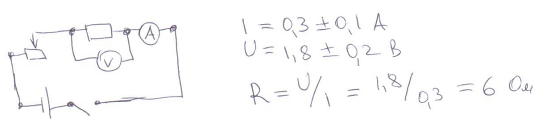 A
V
I = 0,3 ± 0,1 A
U = 1,8 ± 0,2 В
R = U/I = 1,8/0,3 = 6 Ом